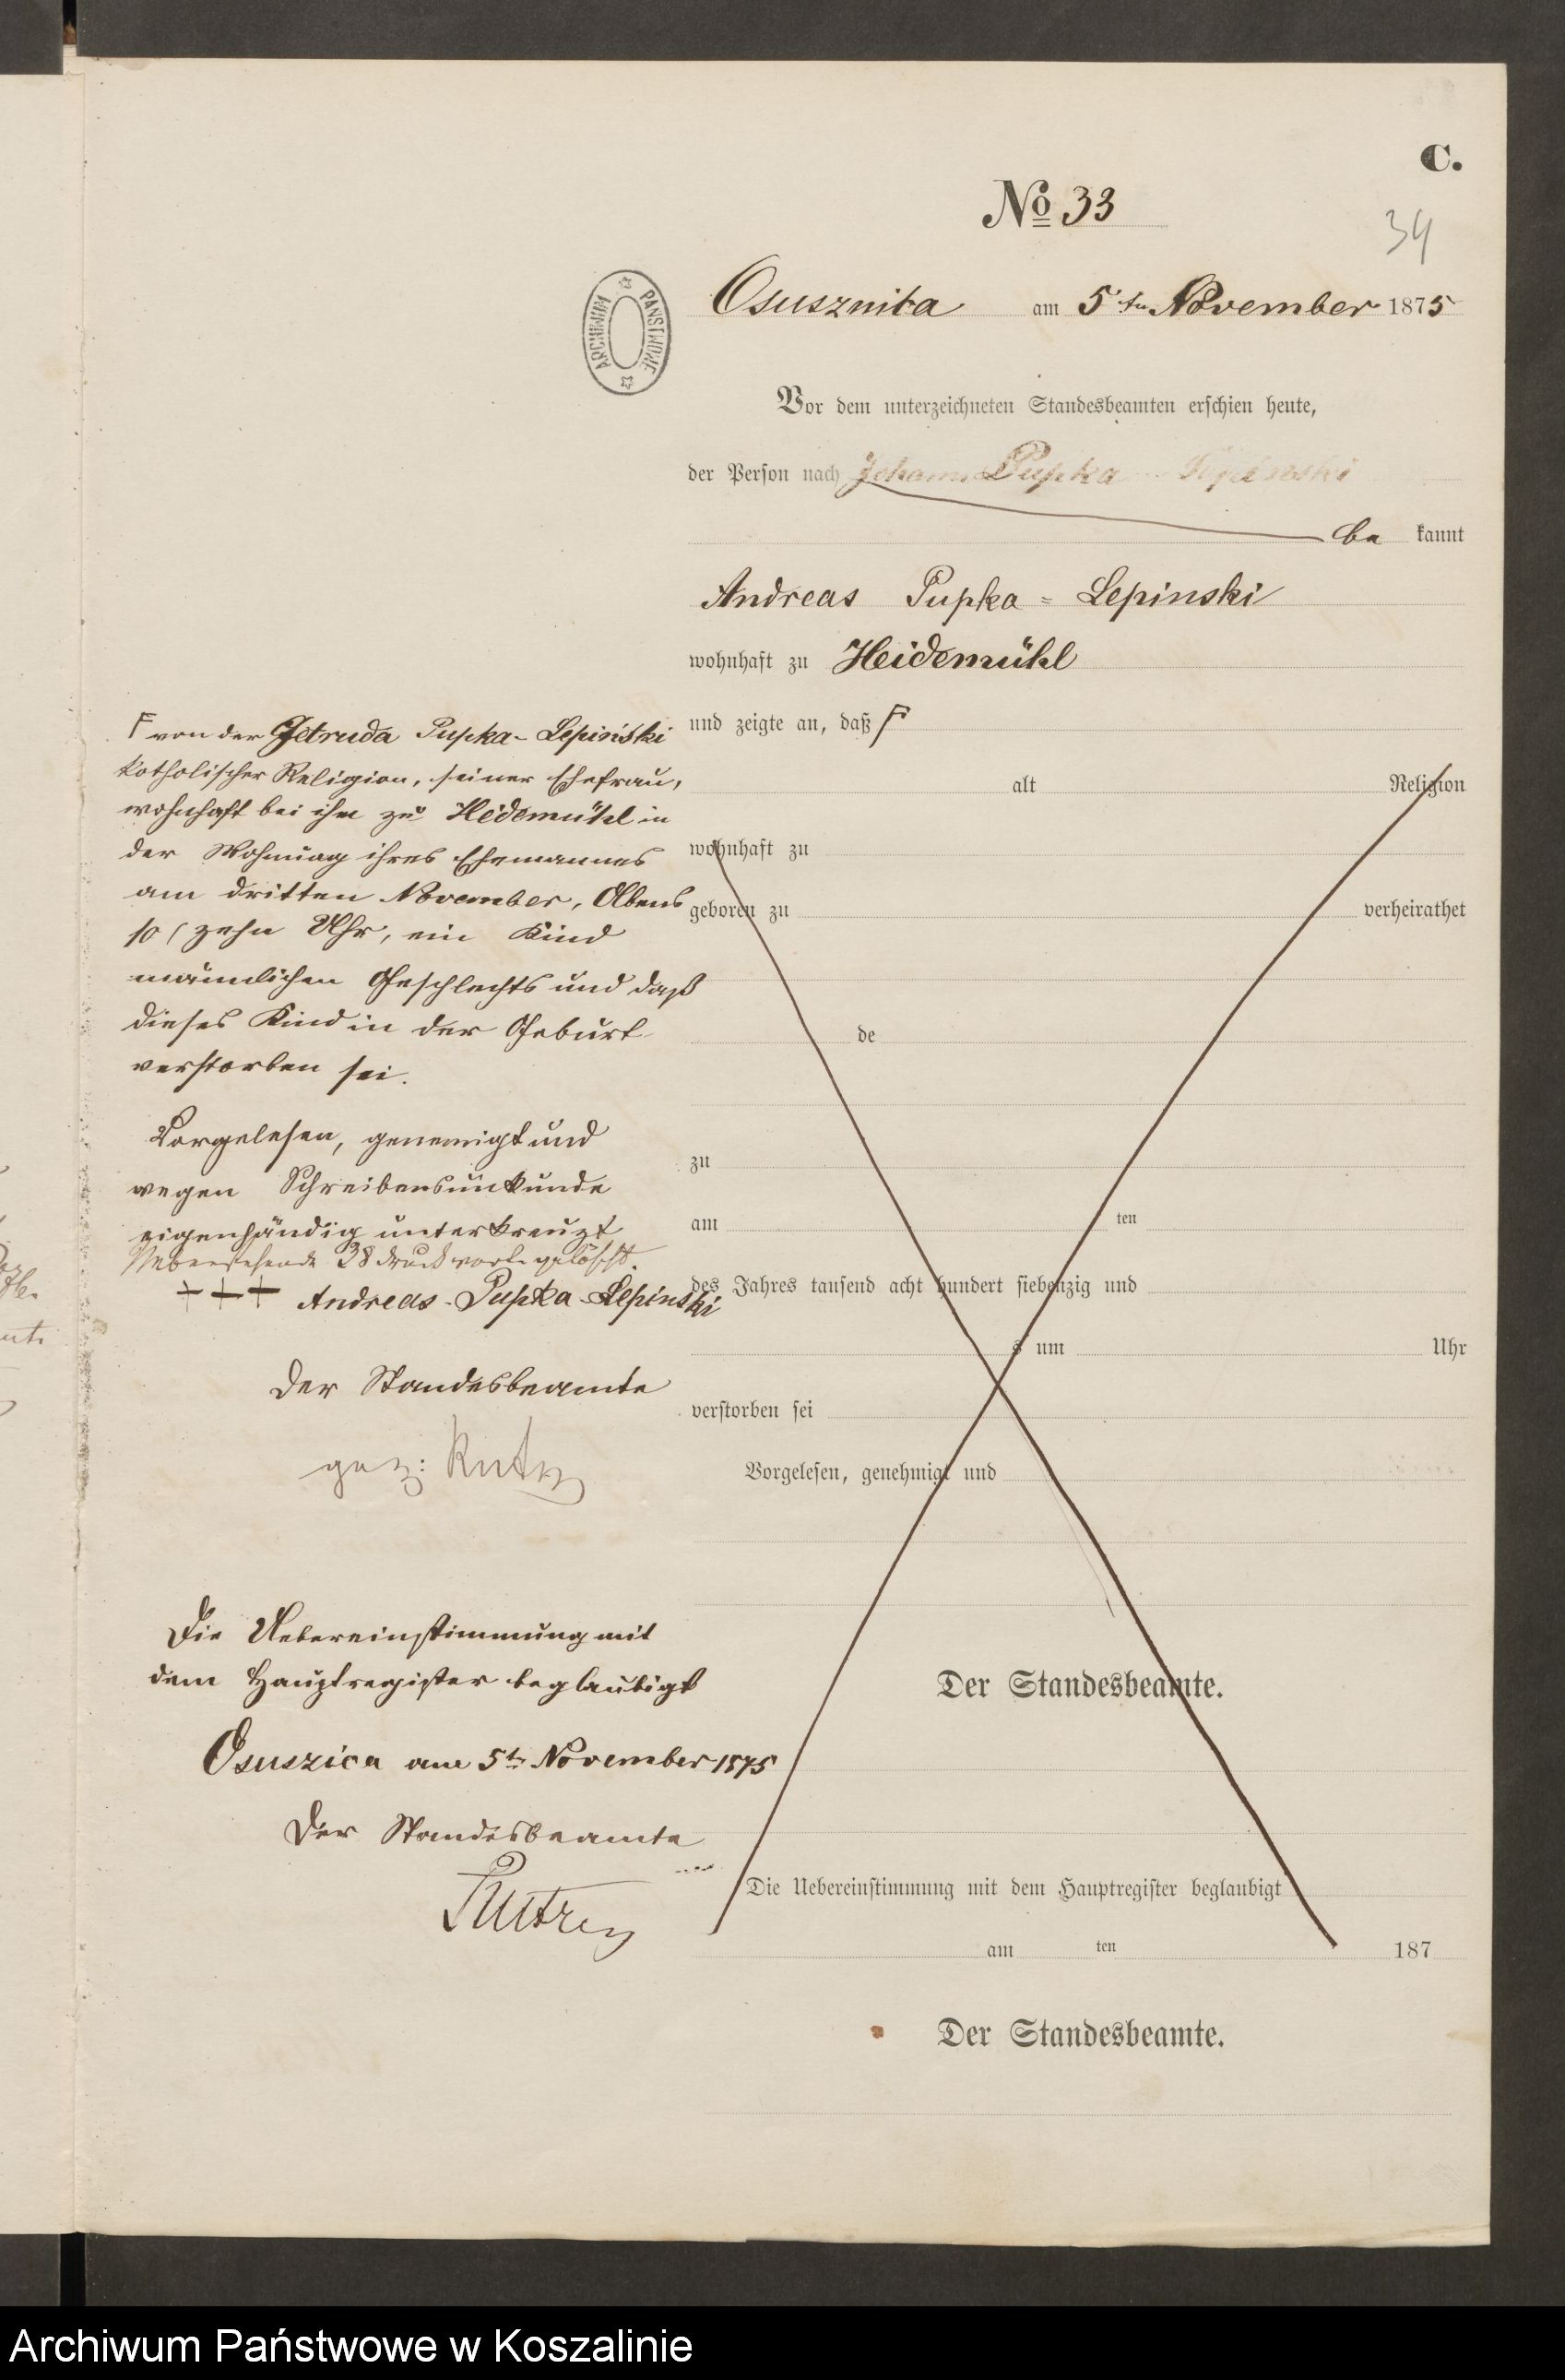 C.
No 33
34
ARCHIWUM PAŃSTWOWE
Osusznita am 5ten November 1875
Vor dem unterzeichneten Standesbeamten erschien heute,
der Person nach Johann Pupka Lepinski
be kannt
Andreas Pupka = Lepinski
wohnhaft zu Heidemühl
und zeigte an, daß F
F von der Jetruda Pupka-Lepinski
katholischer Religion, seiner Ehefrau,
wohnhaft bei ihm zu Heidemühl in
der Wohnung ihres Ehemannes
am dritten November, Abens
10 (zehn Uhr, ein Kind
männlichen Geschlechts und daß
dieses Kind in der Geburt
verstorben sei.
Vorgelesen, genemigt und
wegen Schreibensunkunde
eigenhändig unterkreuzt
Nebenstehende 38 Druckworte gelöscht.
+++ Andreas-Pupka-Lepinski
Der Standesbeamte
gez:
Die Uebereinstimmung mit
dem Hauptregister beglaubigt
Osuszica am 5ten November 1875
Der Standesbeamte
alt Religion
wohnhaft zu
geboren zu verheirathet
de
zu
am ten
des Jahres tausend acht hundert siebenzig und
s um Uhr
verstorben sei
Vorgelesen, genehmigt und
Der Standesbeamte.
Die Uebereinstimmung mit dem Hauptregister beglaubigt
am ten 187
Der Standesbeamte.
Archiwum Państwowe w Koszalinie